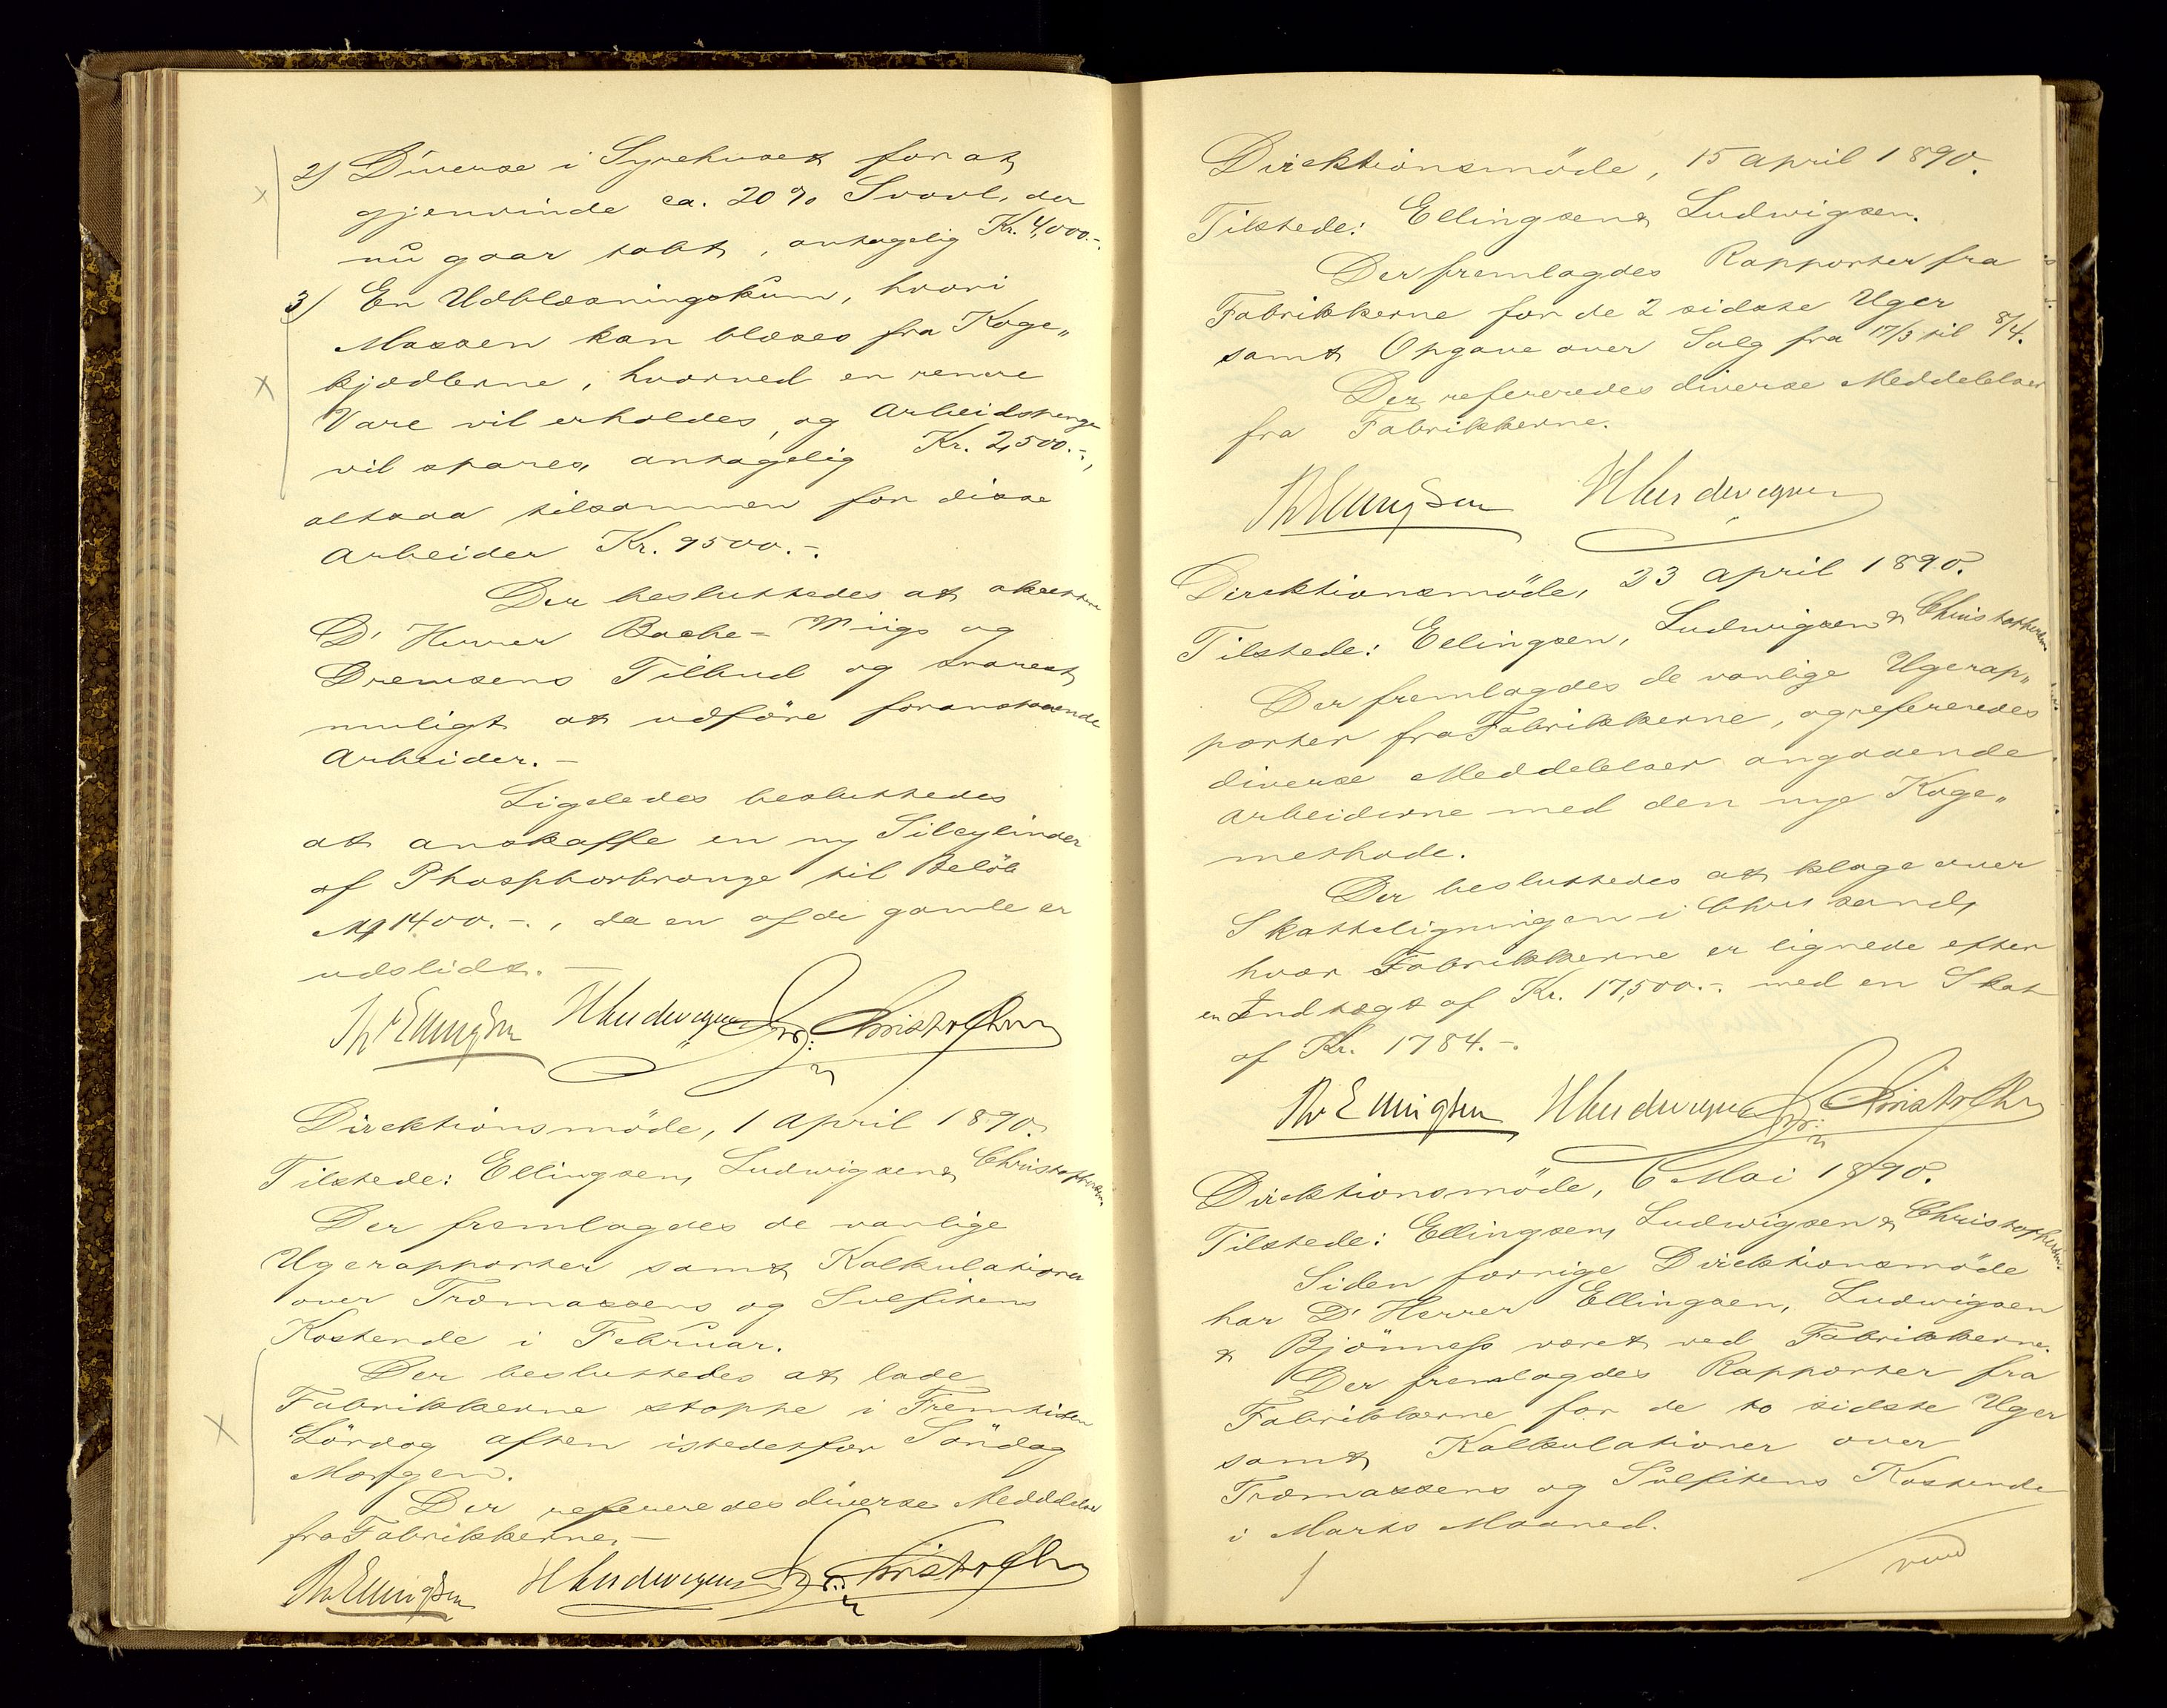 2) Diverse i Syrehuset for at
gjenvinde ca. 20% Svovl, der
nu gaar tabt, antagelig Kr. 4,000.-.
3) En Udblæsningskum, hvori
Massen kan blæses fra Koge„
kjædlerne, hvorved en renere
Vare vil erholdes, og Arbeidspenge
vil spares, antagelig Kr. 2,500.-,
altsaa tilsammen for disse
Arbeider Kr. 9500.-.
Der besluttedes at akceptere
D' Herrer Bache-Wiigs og
Drewsens Tilbud og snarest
muligt at udföre foranstaaende
Arbeider.-
Ligeledes besluttedes
at anskaffe en ny Silcylinder
af Phosphorbronze til Belöb
M 1400.-., da en af de gamle er
udslidt.-
Th Ellingsen H Ludwigsen Chr: Christophersen
Direktionsmöde, 1 April 1890.
Tilstede: Ellingsen, Ludwigsen & Christophersen.
Der fremlagdes de vanlige
Ugerapporter samt Kalkulationer
over Træmassens og Sulfitens
Kostende i Februar.
Der besluttedes at lade
Fabrikkerne stoppe i Fremtiden
Lördag aften istedetfor Söndag
Morgen.
Der refereredes diverse Meddelelser
fra Fabrikkerne.-
Th Ellingsen H Ludwigsen Chr: Christophersen
Direktionsmöde, 15 April 1890.
Tilstede: Ellingsen & Ludwigsen.
Der fremlagdes Rapporter fra
Fabrikkerne for de 2 sidste Uger
samt Opgave over Salg fra 17/3 til 8/4.
Der refereredes diverse Meddelelser
fra Fabrikkerne.
Th Ellingsen H Ludwigsen
Direktionsmöde, 23 April 1890.
Tilstede: Ellingsen, Ludwigsen & Christophersen
Der fremlagdes de vanlige Ugerap„
porter fra Fabrikkerne, og refereredes
diverse Meddelelser angaaende
Arbeiderne med den nye Koge„
methode.
Der besluttedes at klage over
Skatteligningen i Chrsand,
hvor Fabrikkerne er lignede efter
en Indtægt af Kr. 17,500.-. med en Skat
af Kr. 1784.-.
Th Ellingsen H Ludwigsen Chr: Christophersen
Direktionsmöde, 6 Mai 1890.
Tilstede: Ellingsen, Ludwigsen & Christophersen.
Siden forrige Direktionsmöde
har D' Herrer Ellingsen, Ludwigsen
& Bjönness været ved Fabrikkerne.
Der fremlagdes Rapporter fra
Fabrikkerne for de to sidste Uger
samt Kalkulationer over
Træmassens og Sulfitens Kostende
i Marts Maaned.
vend